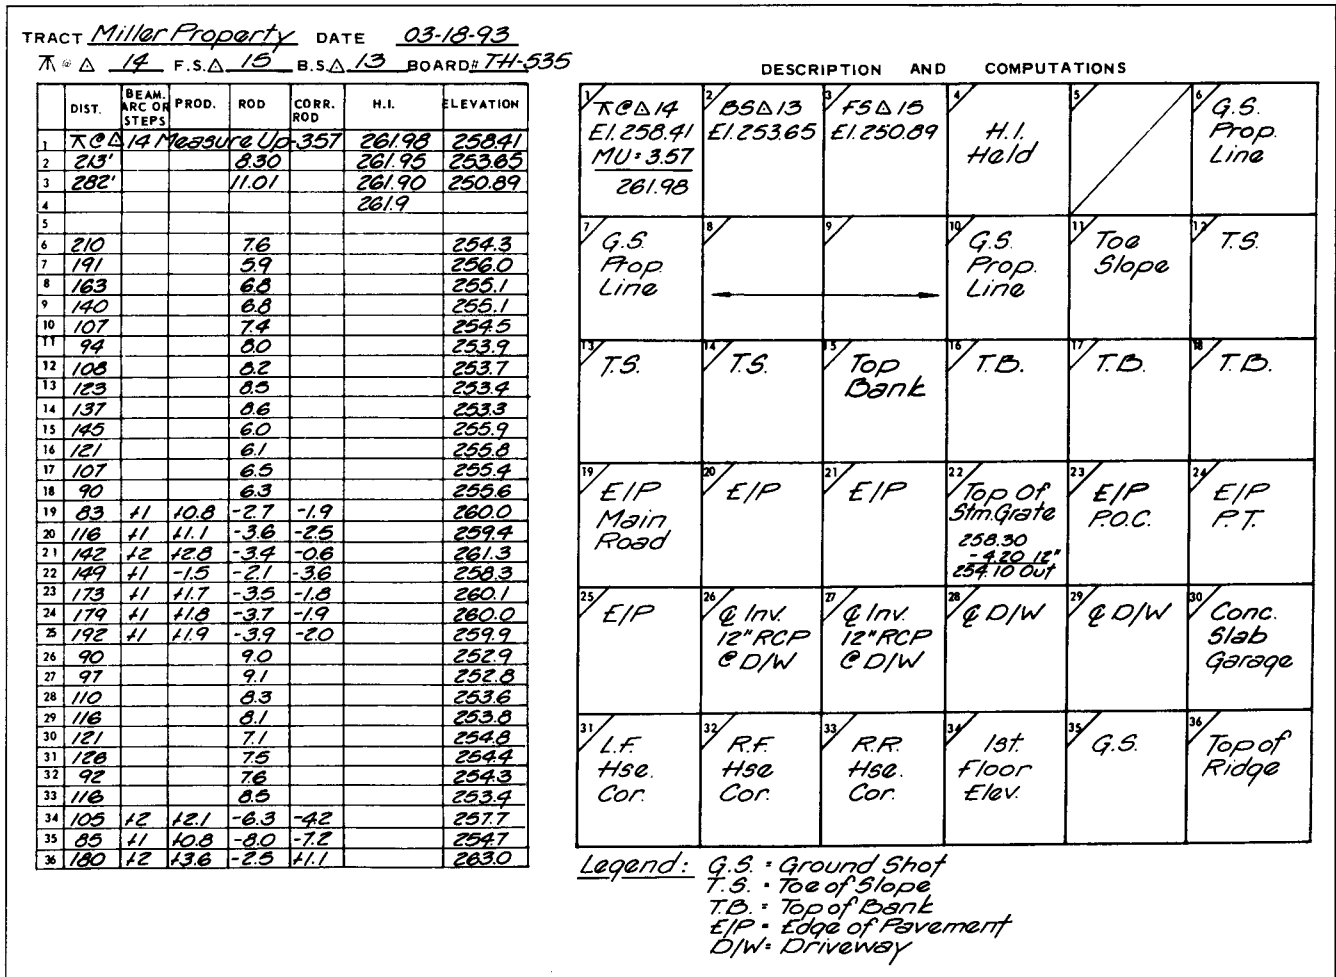 TRACT Miller Property DATE 03-18-93
⊼ @ △ 14 F.S.△ 15 B.S.△ 13 BOARD# TH-535
DIST. BEAM. ARC OR STEPS PROD. ROD CORR. ROD H.I. ELEVATION
1 ⊼@△14 Measure Up-3.57 261.98 258.41
2 213' 8.30 261.95 253.65
3 282' 11.01 261.90 250.89
4 261.9
5
6 210 7.6 254.3
7 191 5.9 256.0
8 163 6.8 255.1
9 140 6.8 255.1
10 107 7.4 254.5
11 94 8.0 253.9
12 108 8.2 253.7
13 123 8.5 253.4
14 137 8.6 253.3
15 145 6.0 255.9
16 121 6.1 255.8
17 107 6.5 255.4
18 90 6.3 255.6
19 83 +1 +0.8 -2.7 -1.9 260.0
20 116 +1 +1.1 -3.6 -2.5 259.4
21 142 +2 +2.8 -3.4 -0.6 261.3
22 149 +1 -1.5 -2.1 -3.6 258.3
23 173 +1 +1.7 -3.5 -1.8 260.1
24 179 +1 +1.8 -3.7 -1.9 260.0
25 192 +1 +1.9 -3.9 -2.0 259.9
26 90 9.0 252.9
27 97 9.1 252.8
28 110 8.3 253.6
29 116 8.1 253.8
30 121 7.1 254.8
31 128 7.5 254.4
32 92 7.6 254.3
33 116 8.5 253.4
34 105 +2 +2.1 -6.3 -4.2 257.7
35 85 +1 +0.8 -8.0 -7.2 254.7
36 180 +2 +3.6 -2.5 +1.1 263.0
DESCRIPTION AND COMPUTATIONS
1 ⊼@△14
El. 258.41
MU= 3.57
261.98
2 BS△13
El. 253.65
3 FS△15
El. 250.89
4 H.I.
Held
5
6 G.S.
Prop.
Line
7 G.S.
Prop.
Line
8
9
10 G.S.
Prop.
Line
11 Toe
Slope
12 T.S.
13 T.S.
14 T.S.
15 Top
Bank
16 T.B.
17 T.B.
18 T.B.
19 E/P
Main
Road
20 E/P
21 E/P
22 Top of
Stm. Grate
258.30
-4.20 12"
254.10 Out
23 E/P
P.O.C.
24 E/P
P.T.
25 E/P
26 ℄ Inv.
12" RCP
@ D/W
27 ℄ Inv.
12" RCP
@ D/W
28 ℄ D/W
29 ℄ D/W
30 Conc.
Slab
Garage
31 L.F.
Hse.
Cor.
32 R.F.
Hse
Cor.
33 R.R.
Hse.
Cor.
34 1st.
Floor
Elev.
35 G.S.
36 Top of
Ridge
Legend: G.S. = Ground Shot
T.S. = Toe of Slope
T.B. = Top of Bank
E/P = Edge of Pavement
D/W = Driveway